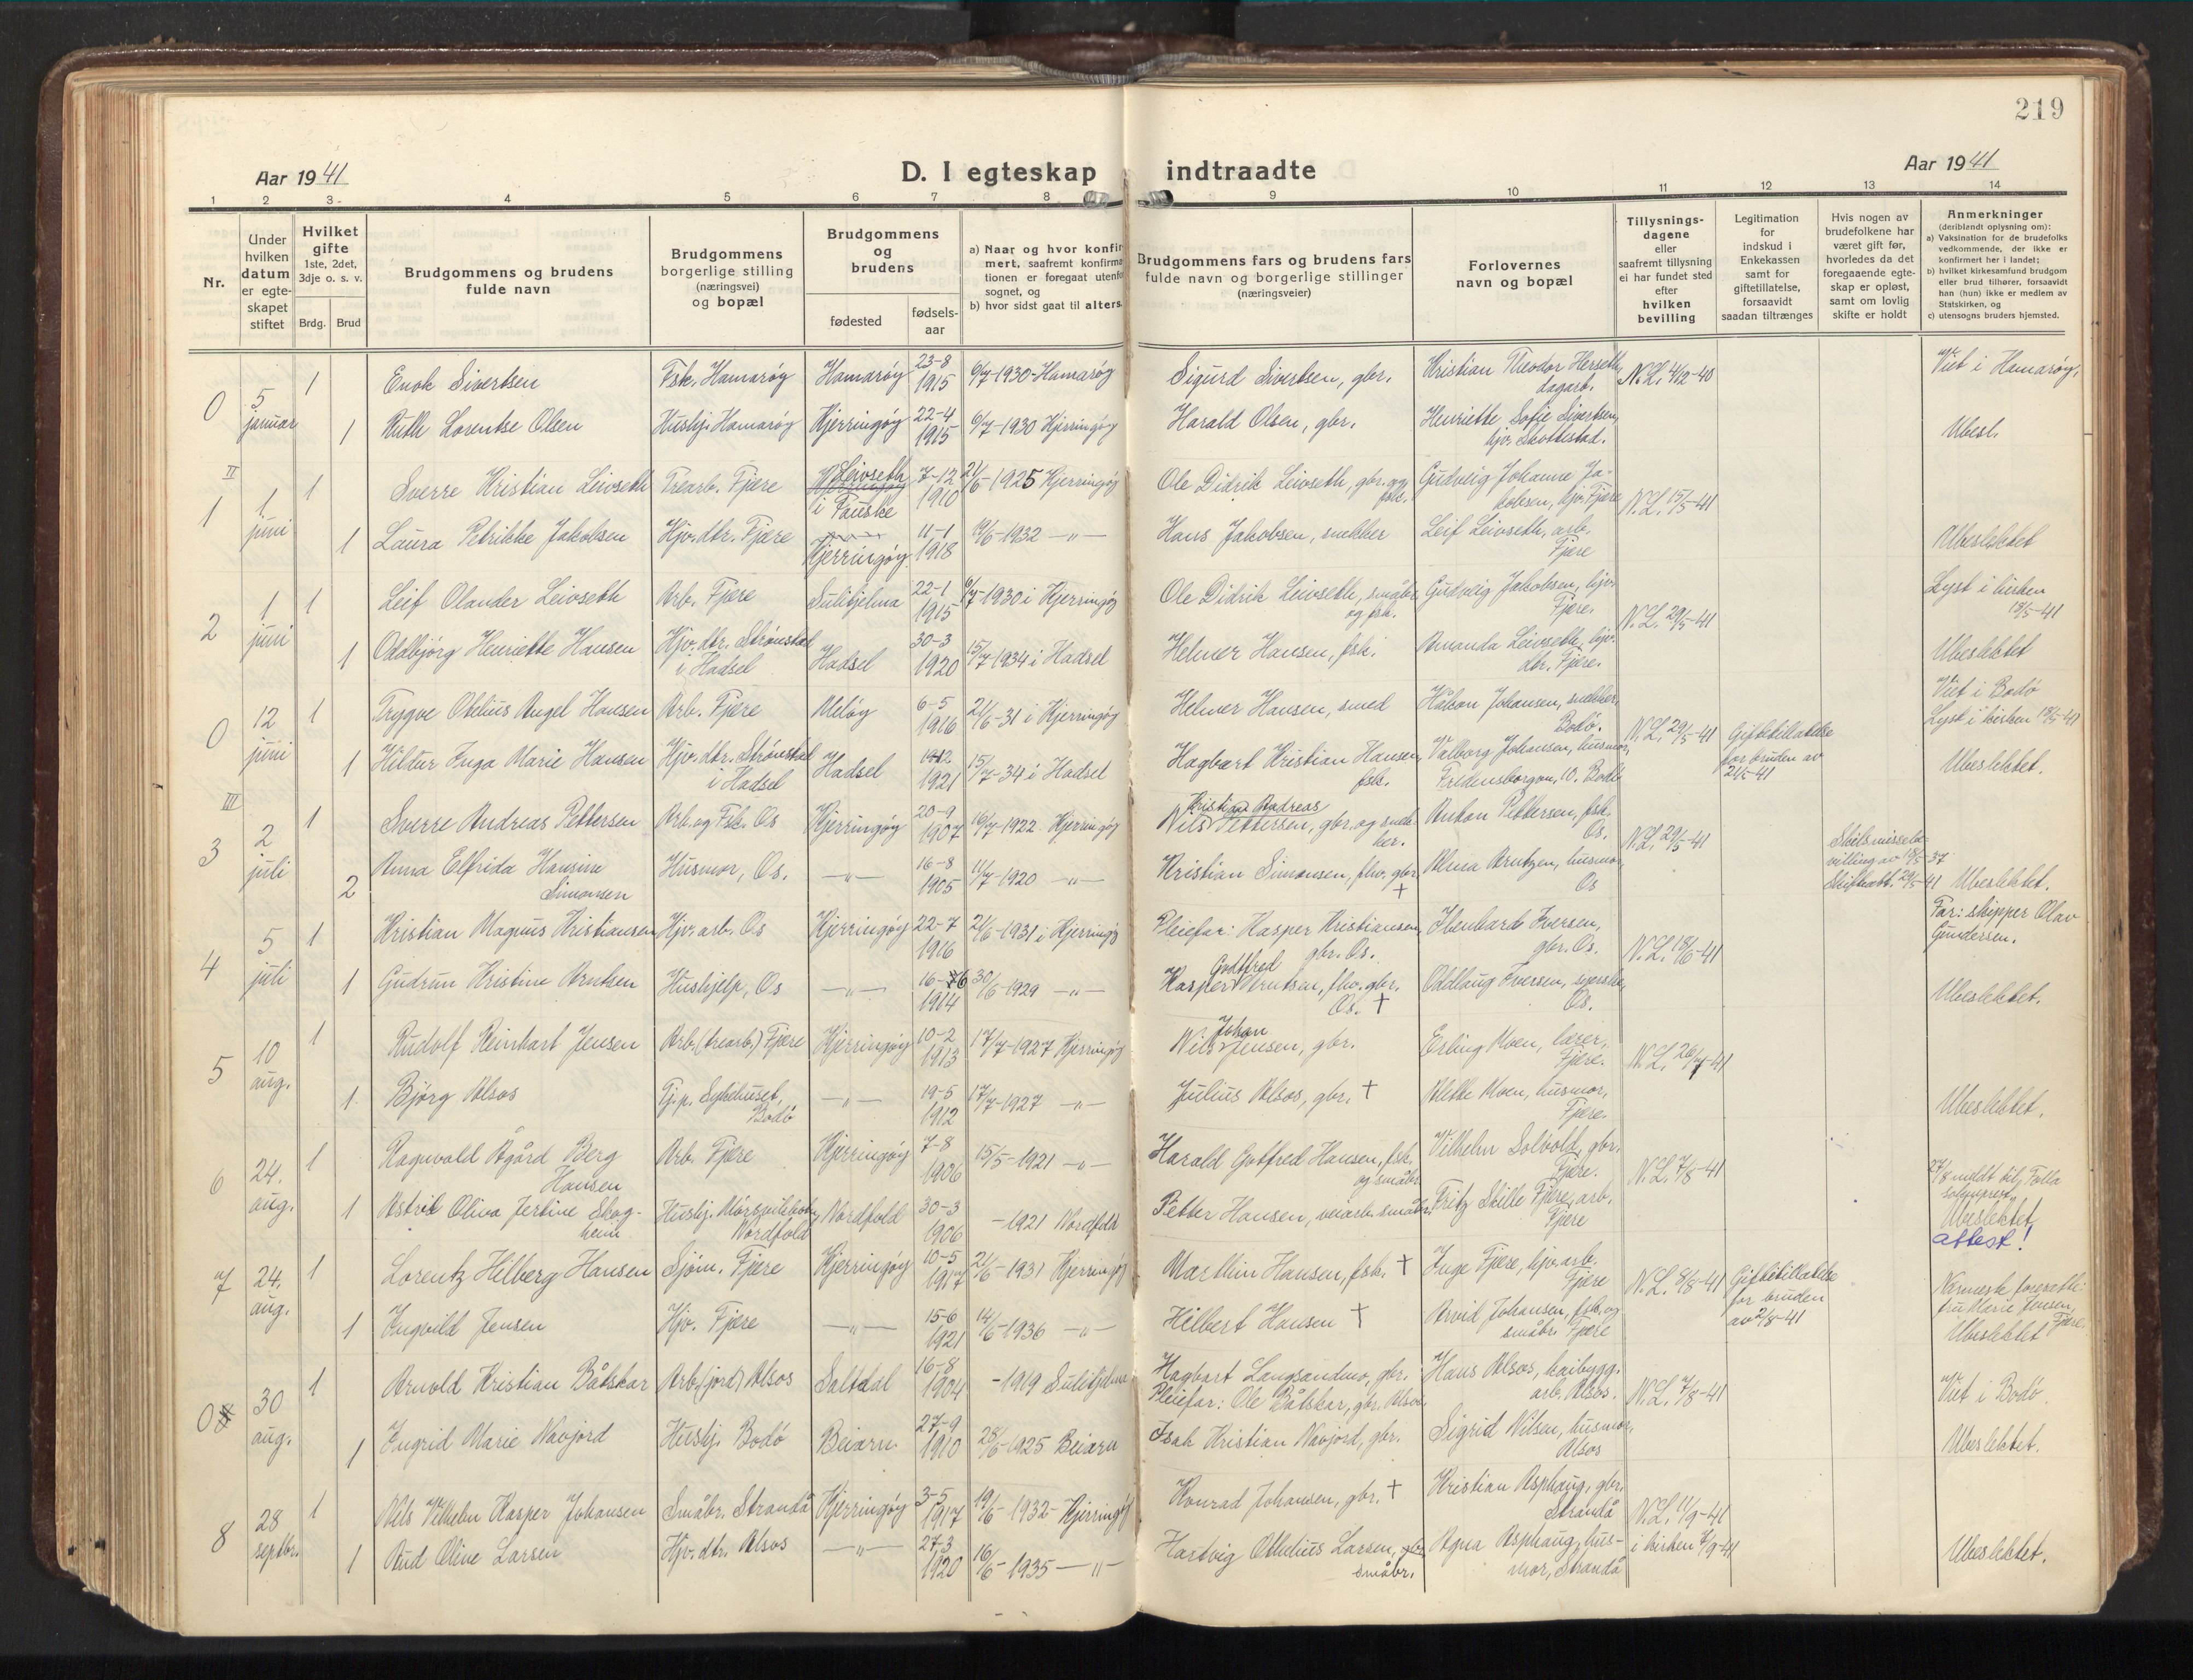 219
Aar 1941
D. I egteskap indtraadte
Aar 1941
1 2 3 4 5 6 7 8 9 10 11 12 13 14
Nr.
Under hvilken datum er egteskapet stiftet
Hvilket gifte
1ste, 2det, 3dje o. s. v.
Brdg. Brud
Brudgommens og brudens fulde navn
Brudgommens borgerlige stilling (næringsvei) og bopæl
Brudgommens og brudens
fødested
fødselsaar
a) Naar og hvor konfirmert, saafremt konfirmationen er foregaat utenfor sognet, og
b) hvor sidst gaat til alters.
Brudgommens fars og brudens fars fulde navn og borgerlige stillinger (næringsveier)
Forlovernes navn og bopæl
Tillysningsdagene eller saafremt tillysning ei har fundet sted efter hvilken bevilling
Legitimation for indskud i Enkekassen samt for giftetillatelse, forsaavidt saadan tiltrænges
Hvis nogen av brudefolkene har været gift før, hvorledes da det foregaaende egteskap er opløst, samt om lovlig skifte er holdt
Anmerkninger (deriblandt oplysning om):
a) Vaksination for de brudefolks vedkommende, der ikke er konfirmert her i landet;
b) hvilket kirkesamfund brudgom eller brud tilhører, forsaavidt han (hun) ikke er medlem av Statskirken, og
c) utensogns bruders hjemsted.
0 5 januar 1 Enok Sivertsen Fsk. Hamarøy Hamarøy 23-8 1915 6/7-1930 Hamarøy Sigurd Sivertsen, gbr. Kristian Theodor Herseth, dagarb. N.L. 4/12-40 Viet i Hamarøy.
1 Ruth Lorentse Olsen Hushj. Hamarøy Kjerringøy 22-4 1915 6/7-1930 Kjerringøy Harald Olsen, gbr. Henriette Sofie Sivertsen, hjv. Skottestad. Ubesl.
II
1 1 juni 1 Sverre Kristian Leivseth Trearb. Fjære Leivseth i Fauske 7-12 1910 21/6-1925 Kjerringøy Ole Didrik Leivseth, gbr. og fsk. Gudveig Johanne Jakobsen, hjv. Fjære N.L. 15/5-41
1 Laura Petrikke Jakobsen Hjv. dtr. Fjære Kjerringøy 11-1 1918 19/6-1932 —"— Hans Jakobsen, snekker Leif Leivseth, arb. Fjære Ubeslektet
2 1 juni 1 Leif Olander Leivseth Arb. Fjære Sulitjelma 22-1 1915 6/7-1930 i Kjerringøy Ole Didrik Leivseth, småbr. og fsk. Gudveig Jakobsen, hjv. Fjære. N.L. 29/5-41 Lyst i kirken 18/5-41
1 Oddbjørg Henriette Hansen Hjv. dtr. Strønstad i Hadsel Hadsel 30-3 1920 15/7-1934 i Hadsel Helmer Hansen, fsk. Amanda Leivseth, hjv. dtr. Fjære. Ubeslektet
0 12 juni 1 Trygve Obelius Angel Hansen Arb. Fjære Meløy 6-5 1916 21/6-31 i Kjerringøy Helmer Hansen, smed Håkon Johansen, snekker, Bodø. N.L. 29/5-41 Giftetillatelse for bruden av 21/5-41 Viet i Bodø Lyst i kirken 18/5-41
1 Hildur Inga Marie Hansen Hjv. dtr. Strønstad i Hadsel Hadsel 1921 15/7-34 i Hadsel Hagbart Kristian Hansen, fsk. Valborg Johansen, husmor, Fredensborgvn. 10. Bodø Ubeslektet.
III
3 2 juli 1 Sverre Andreas Pettersen Arb. og Fsk. Os Kjerringøy 20-9 1907 16/7-1922 Kjerringøy Nils Kristian Andreas Pettersen, gbr. og snekker. Anton Pettersen, fsk. Os. N.L. 29/5-41
2 Anna Elfrida Hansine Simonsen Husmor, Os. —"— 16-8 1905 11/7-1920 —"— Kristian Simonsen, fhv. gbr. + Alma Arntzen, husmor, Os Skilsmissebevilling av 18/5-37 Skifteatt. 29/5-41 Ubeslektet.
4 5 juli 1 Kristian Magnus Kristiansen Hjv. arb. Os Kjerringøy 22-7 1916 21/6-1931 i Kjerringøy Pleiefar: Kasper Kristiansen, gbr. Os. Ibenhart Iversen, gbr. Os. N.L. 18/6-41 Far: skipper Olav Gundersen.
1 Gudrun Kristine Arntsen Hushjelp, Os —"— 16-6 1914 30/6-1929 —"— Kasper Godtfred Arntsen, fhv. gbr. Os. + Oddlaug Iversen, syerske, Os. Ubeslektet.
5 10 aug. 1 Rudolf Reinhart Jensen Arb. (trearb.) Fjære Kjerringøy 10-2 1913 17/7-1927 Kjerringøy Nils Johan Jensen, gbr. Erling Moen, lærer, Fjære. N.L. 26/7-41
1 Bjørg Alsos Tj. p. Sykehuset, Bodø —"— 19-5 1912 17/7-1927 —"— Julius Alsos, gbr. + Mette Moen, husmor, Fjære. Ubeslektet.
6 24. aug. 1 Ragnvald Ågård Berg Hansen Arb. Fjære Kjerringøy 7-8 1906 15/5-1921 —"— Harald Gotfred Hansen, fsk. og småbr. Vilhelm Solvold, gbr. Fjære. N.L. 7/8-41 27/8 meldt til Folla sokneprest
1 Astrid Oliva Jertine Skogheim Hushj. Mørsvikbotn, Nordfold Nordfold 30-3 1906 -1921 Nordfold Petter Hansen, veiarb. småbr. Fritz Skille Fjære, arb. Fjære Ubeslektet attest!
7 24. aug. 1 Lorentz Hilberg Hansen Sjøm. Fjære Kjerringøy 10-5 1917 21/6-1931 Kjerringøy Marthin Hansen, fsk. + Inge Fjære, hjv. arb. Fjære N.L. 8/8-41 Giftetillatelse for bruden av 2/8-41 Nærmeste foresatte: fru Marie Jensen, Fjære.
1 Ingvild Jensen Hjv. Fjære —"— 15-6 1921 14/6-1936 —"— Hilbert Hansen + Arvid Johansen, fsk. og småbr. Fjære Ubeslektet
0 30 aug. 1 Arnold Kristian Båtskar Arb. (jord) Alsos Saltdal 16-8 1904 -1919 Sulitjelma Hagbart Langsandmo, gbr. Pleiefar: Ole Båtskar, gbr. Alsos Hans Alsos, kaibygg. arb. Alsos. N.L. 7/8-41 Viet i Bodø.
1 Ingrid Marie Navjord Hushj. Bodø Beiarn 27-9 1910 28/6-1925 Beiarn Isak Kristian Navjord, gbr. Sigrid Nilsen, husmor, Alsos Ubeslektet.
8 28 septbr. 1 Nils Vilhelm Kasper Johansen Småbr. Strandå Kjerringøy 3-5 1917 19/6-1932 Kjerringøy Konrad Johansen, gbr. + Kristian Asphaug, gbr. Strandå N.L. 11/9-41
1 Aud Oline Larsen Hjv. dtr. Alsos —"— 27-3 1920 16/6-1935 —"— Hartvig Othelius Larsen, småbr. Agna Asphaug, husmor, Strandå i kirken 7/9-41 Ubeslektet.